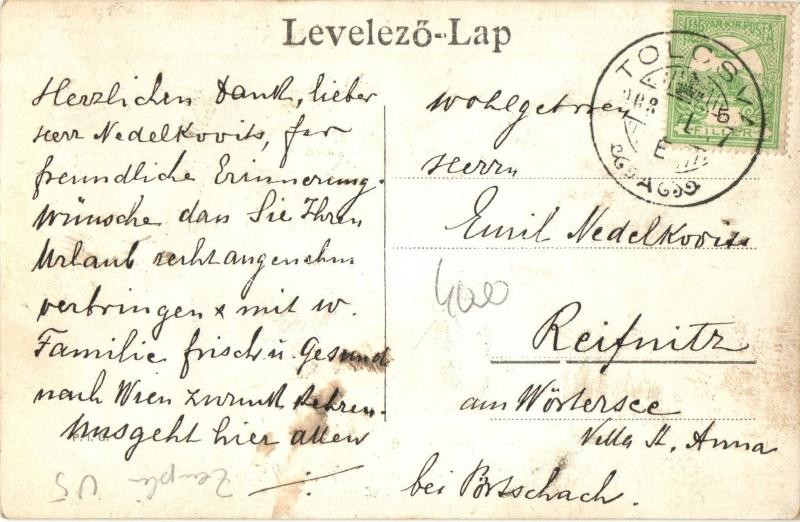 Levelező-Lap
MAGYAR KIR. POSTA
5
FILLÉR
TOLCSVA
908
A
Herzlichen Dank, lieber
Herr Nedelkovits, für
freundliche Erinnerung.
Wünsche dass Sie Ihren
Urlaub recht angenehm
verbringen & mit w.
Familie frisch u. Gesund
nach Wien zurück kehren.
Uns geht hier allen
Wohlgeboren
Herrn
Emil Nedelkovits
Reifnitz
am Wörtersee
Villa St. Anna
bei Pörtschach.
400
Zemplén
U5